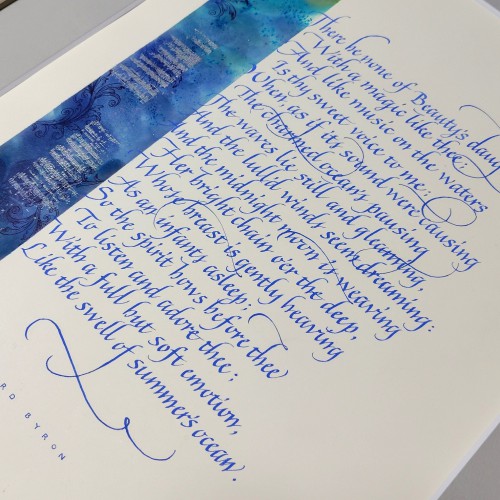 There be none of Beauty's daug
With a magic like thee;
And like music on the waters
Is thy sweet voice to me:
When, as if its sound were causing
The charmed ocean's pausing
The waves lie still and gleaming,
And the lull'd winds seem dreaming:
And the midnight moon is weaving
Her bright chain o'er the deep,
Whose breast is gently heaving
As an infant's asleep;
So the spirit bows before thee
To listen and adore thee;
With a full but soft emotion,
Like the swell of summer's ocean.
RD BYRON